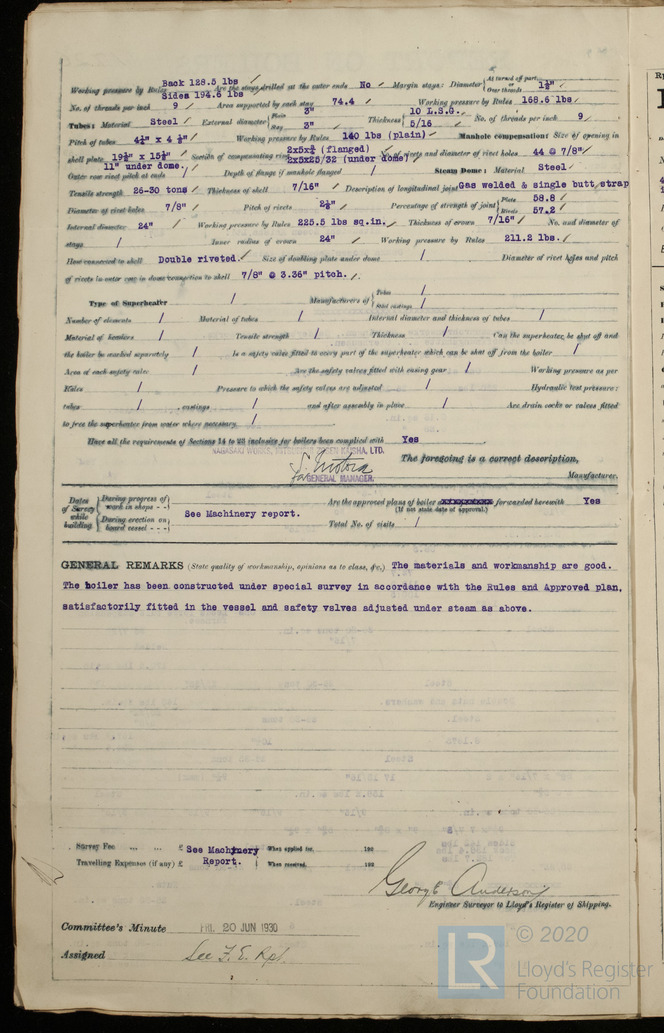 Back 128.5 lbs
Working pressure by Rules Sides 194.6 lbs Are the stays drilled at the outer ends No Margin stays: Diameter { At turned off part, or Over threads 1½"
No. of threads per inch 9 Area supported by each stay 74.4 Working pressure by Rules 168.6 lbs
Tubes: Material Steel External diameter { Plain 3" Stay 3" Thickness { 10 L.S.G. 5/16 No. of threads per inch 9
Pitch of tubes 4¼" x 4¼" Working pressure by Rules 140 lbs (plain) Manhole compensation: Size of opening in
shell plate 19½" x 15½" Section of compensating ring 2x5x¾ (flanged) 2x5x25/32 (under dome) No. of rivets and diameter of rivet holes 44 @ 7/8"
11" under dome.
Outer row rivet pitch at ends Depth of flange if manhole flanged / Steam Dome: Material Steel
Tensile strength 26-30 tons Thickness of shell 7/16" Description of longitudinal joint Gas welded & single butt strap
Diameter of rivet holes 7/8" Pitch of rivets 2⅛" Percentage of strength of joint { Plate 58.8 Rivets 57.2
Internal diameter 24" Working pressure by Rules 225.5 lbs sq.in. Thickness of crown 7/16" No. and diameter of
stays / Inner radius of crown 24" Working pressure by Rules 211.2 lbs.
How connected to shell Double riveted. Size of doubling plate under dome / Diameter of rivet holes and pitch
of rivets in outer row in dome connection to shell 7/8" @ 3.36" pitch.
Type of Superheater / Manufacturers of { Tubes / Steel castings /
Number of elements / Material of tubes / Internal diameter and thickness of tubes /
Material of headers / Tensile strength / Thickness / Can the superheater be shut off and
the boiler be worked separately / Is a safety valve fitted to every part of the superheater which can be shut off from the boiler /
Area of each safety valve / Are the safety valves fitted with easing gear / Working pressure as per
Rules / Pressure to which the safety valves are adjusted / Hydraulic test pressure:
tubes / castings / and after assembly in place / Are drain cocks or valves fitted
to free the superheater from water where necessary /
Have all the requirements of Sections 14 to 22 inclusive for boilers been complied with Yes
NAGASAKI WORKS, KAISHA, LTD.
The foregoing is a correct description,
for GENERAL MANAGER. Manufacturer.
Dates of Survey while building { During progress of work in shops - - } { During erection on board vessel - - - } See Machinery report. Are the approved plans of boiler forwarded herewith Yes
(If not state date of approval.)
Total No. of visits /
GENERAL REMARKS (State quality of workmanship, opinions as to class, &c.) The materials and workmanship are good.
The boiler has been constructed under special survey in accordance with the Rules and Approved plan,
satisfactorily fitted in the vessel and safety vslves adjusted under steam as above.
Survey Fee ... ... £ See Machinery When applied for, 192
Travelling Expenses (if any) £ Report. When received, 192
George Anderson
Engineer Surveyor to Lloyd's Register of Shipping.
Committee's Minute FRI. 20 JUN 1930
Assigned See F.E. Rpt.
© 2020
LR Lloyd's Register
Foundation